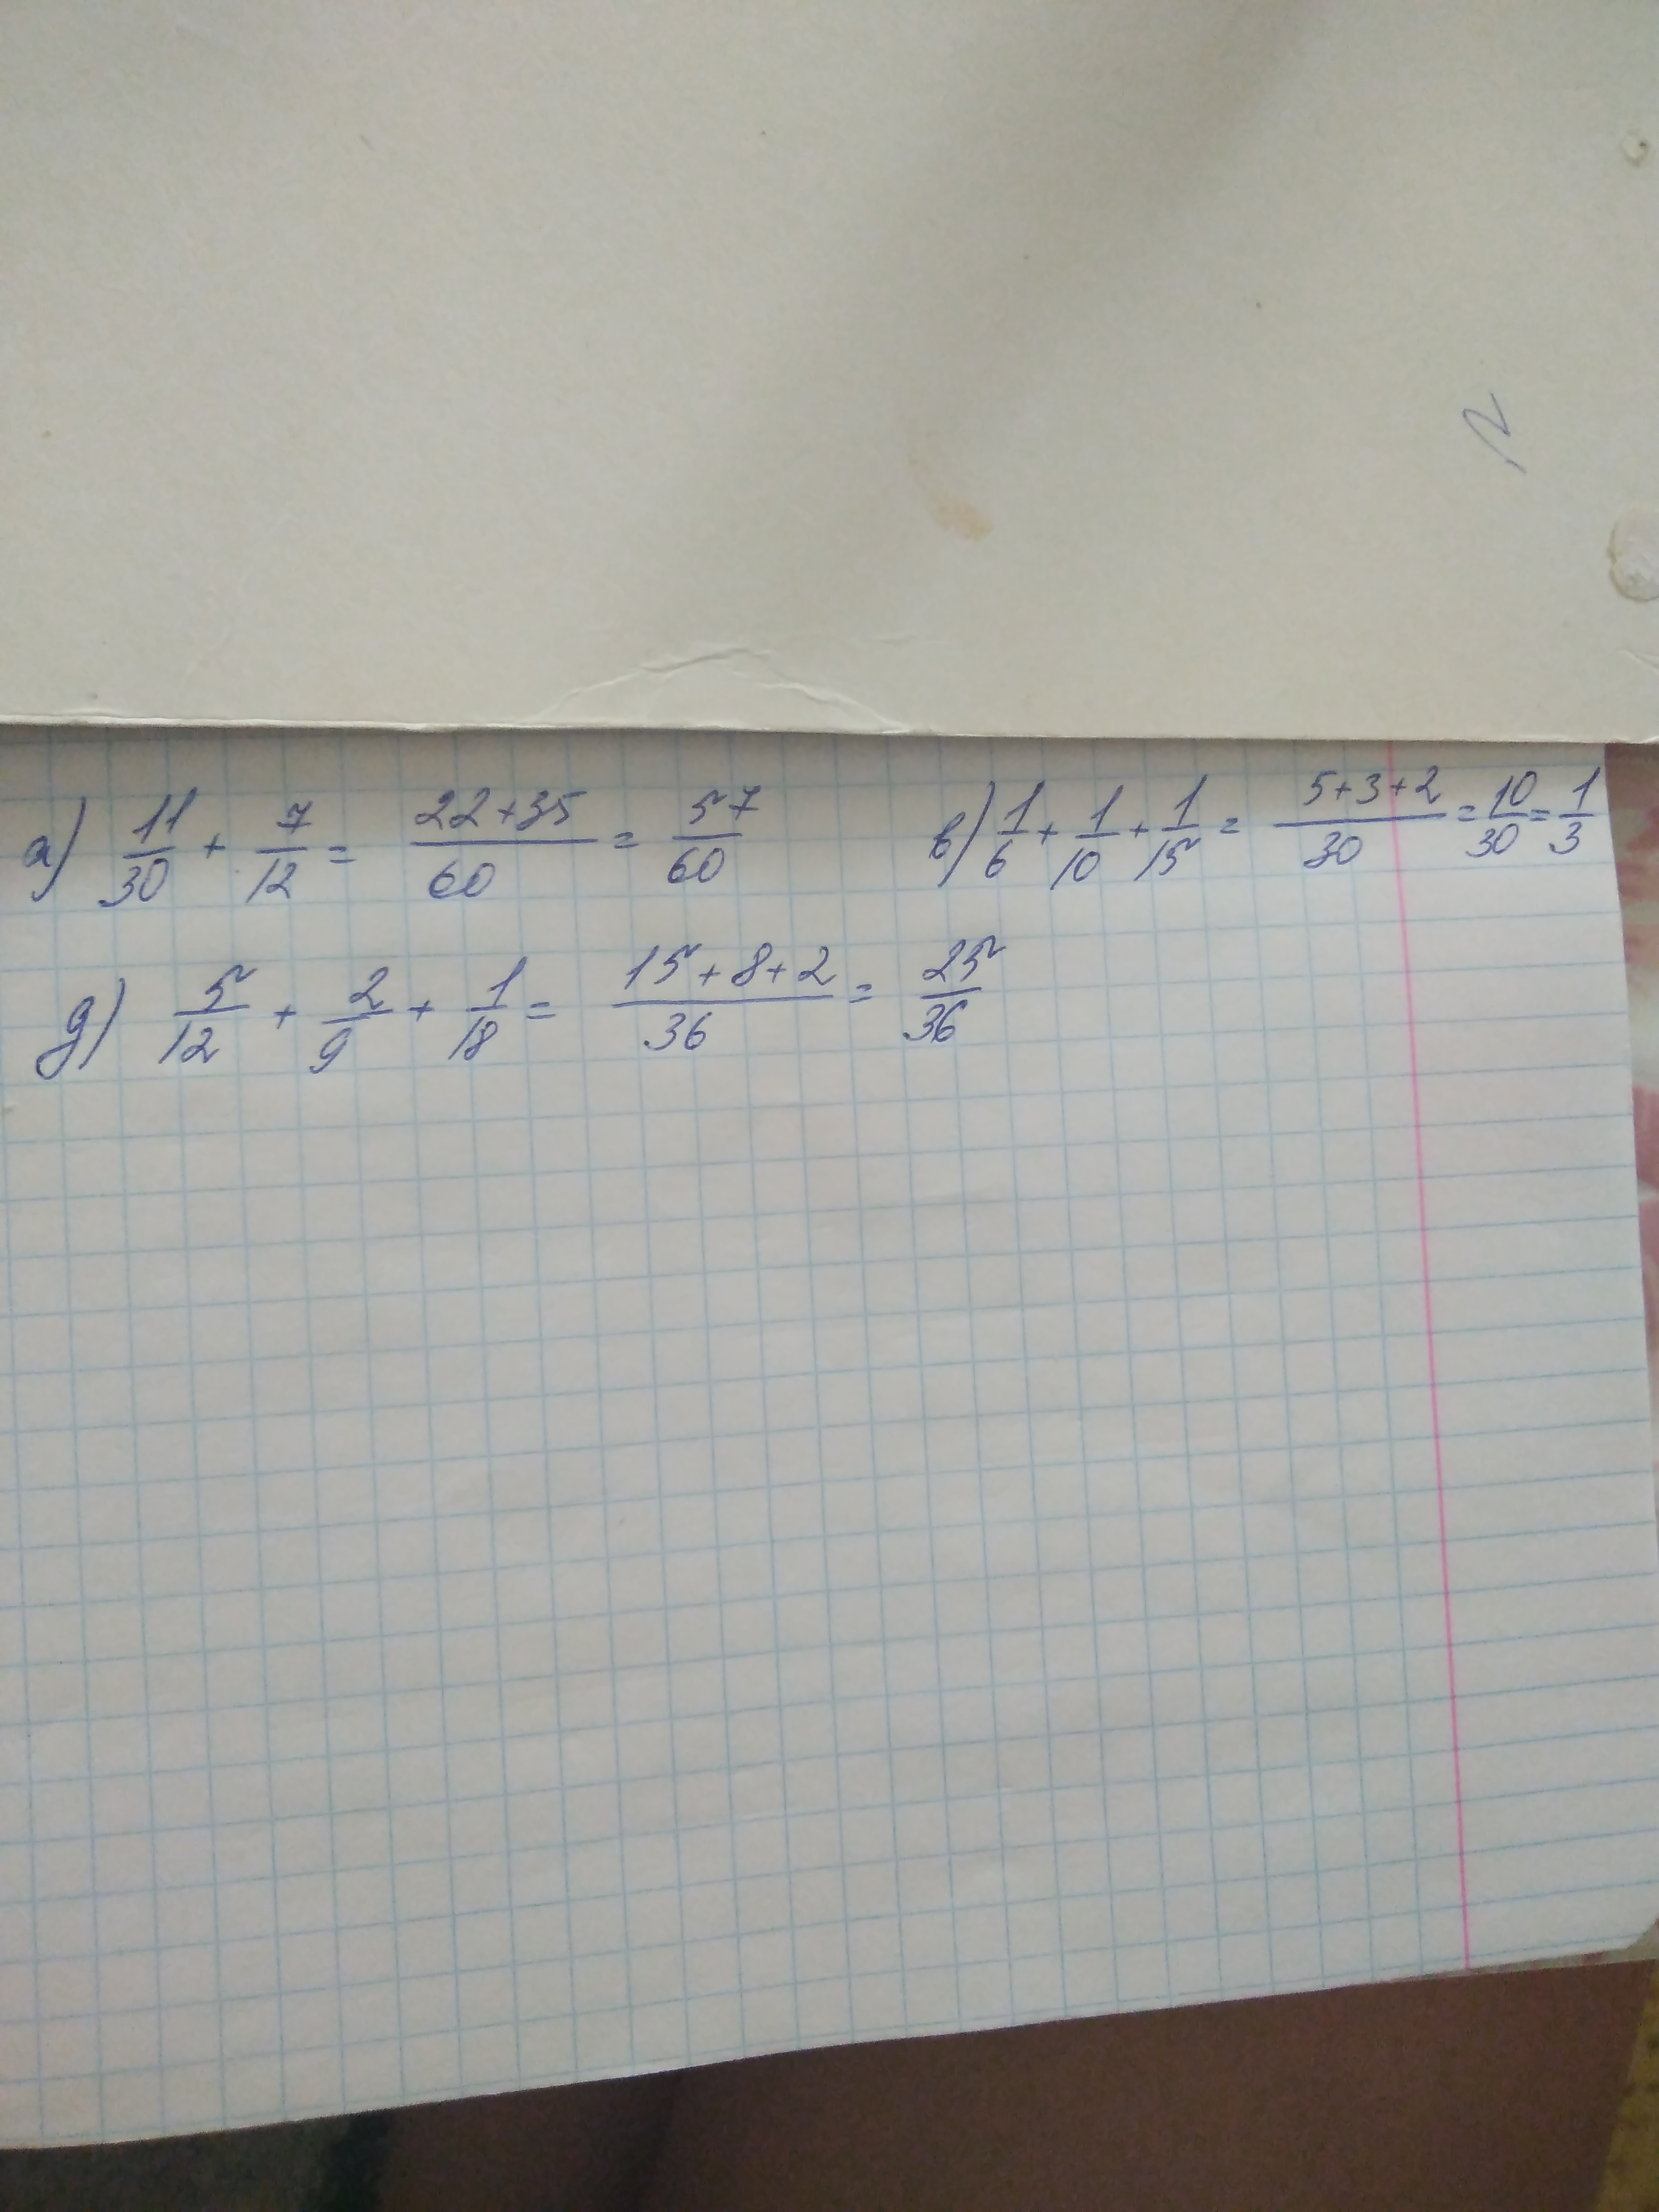 а) 11/30 + 7/12 = (22+35)/60 = 57/60 в) 1/6 + 1/10 + 1/15 = (5+3+2)/30 = 10/30 = 1/3
д) 5/12 + 2/9 + 1/18 = (15+8+2)/36 = 25/36